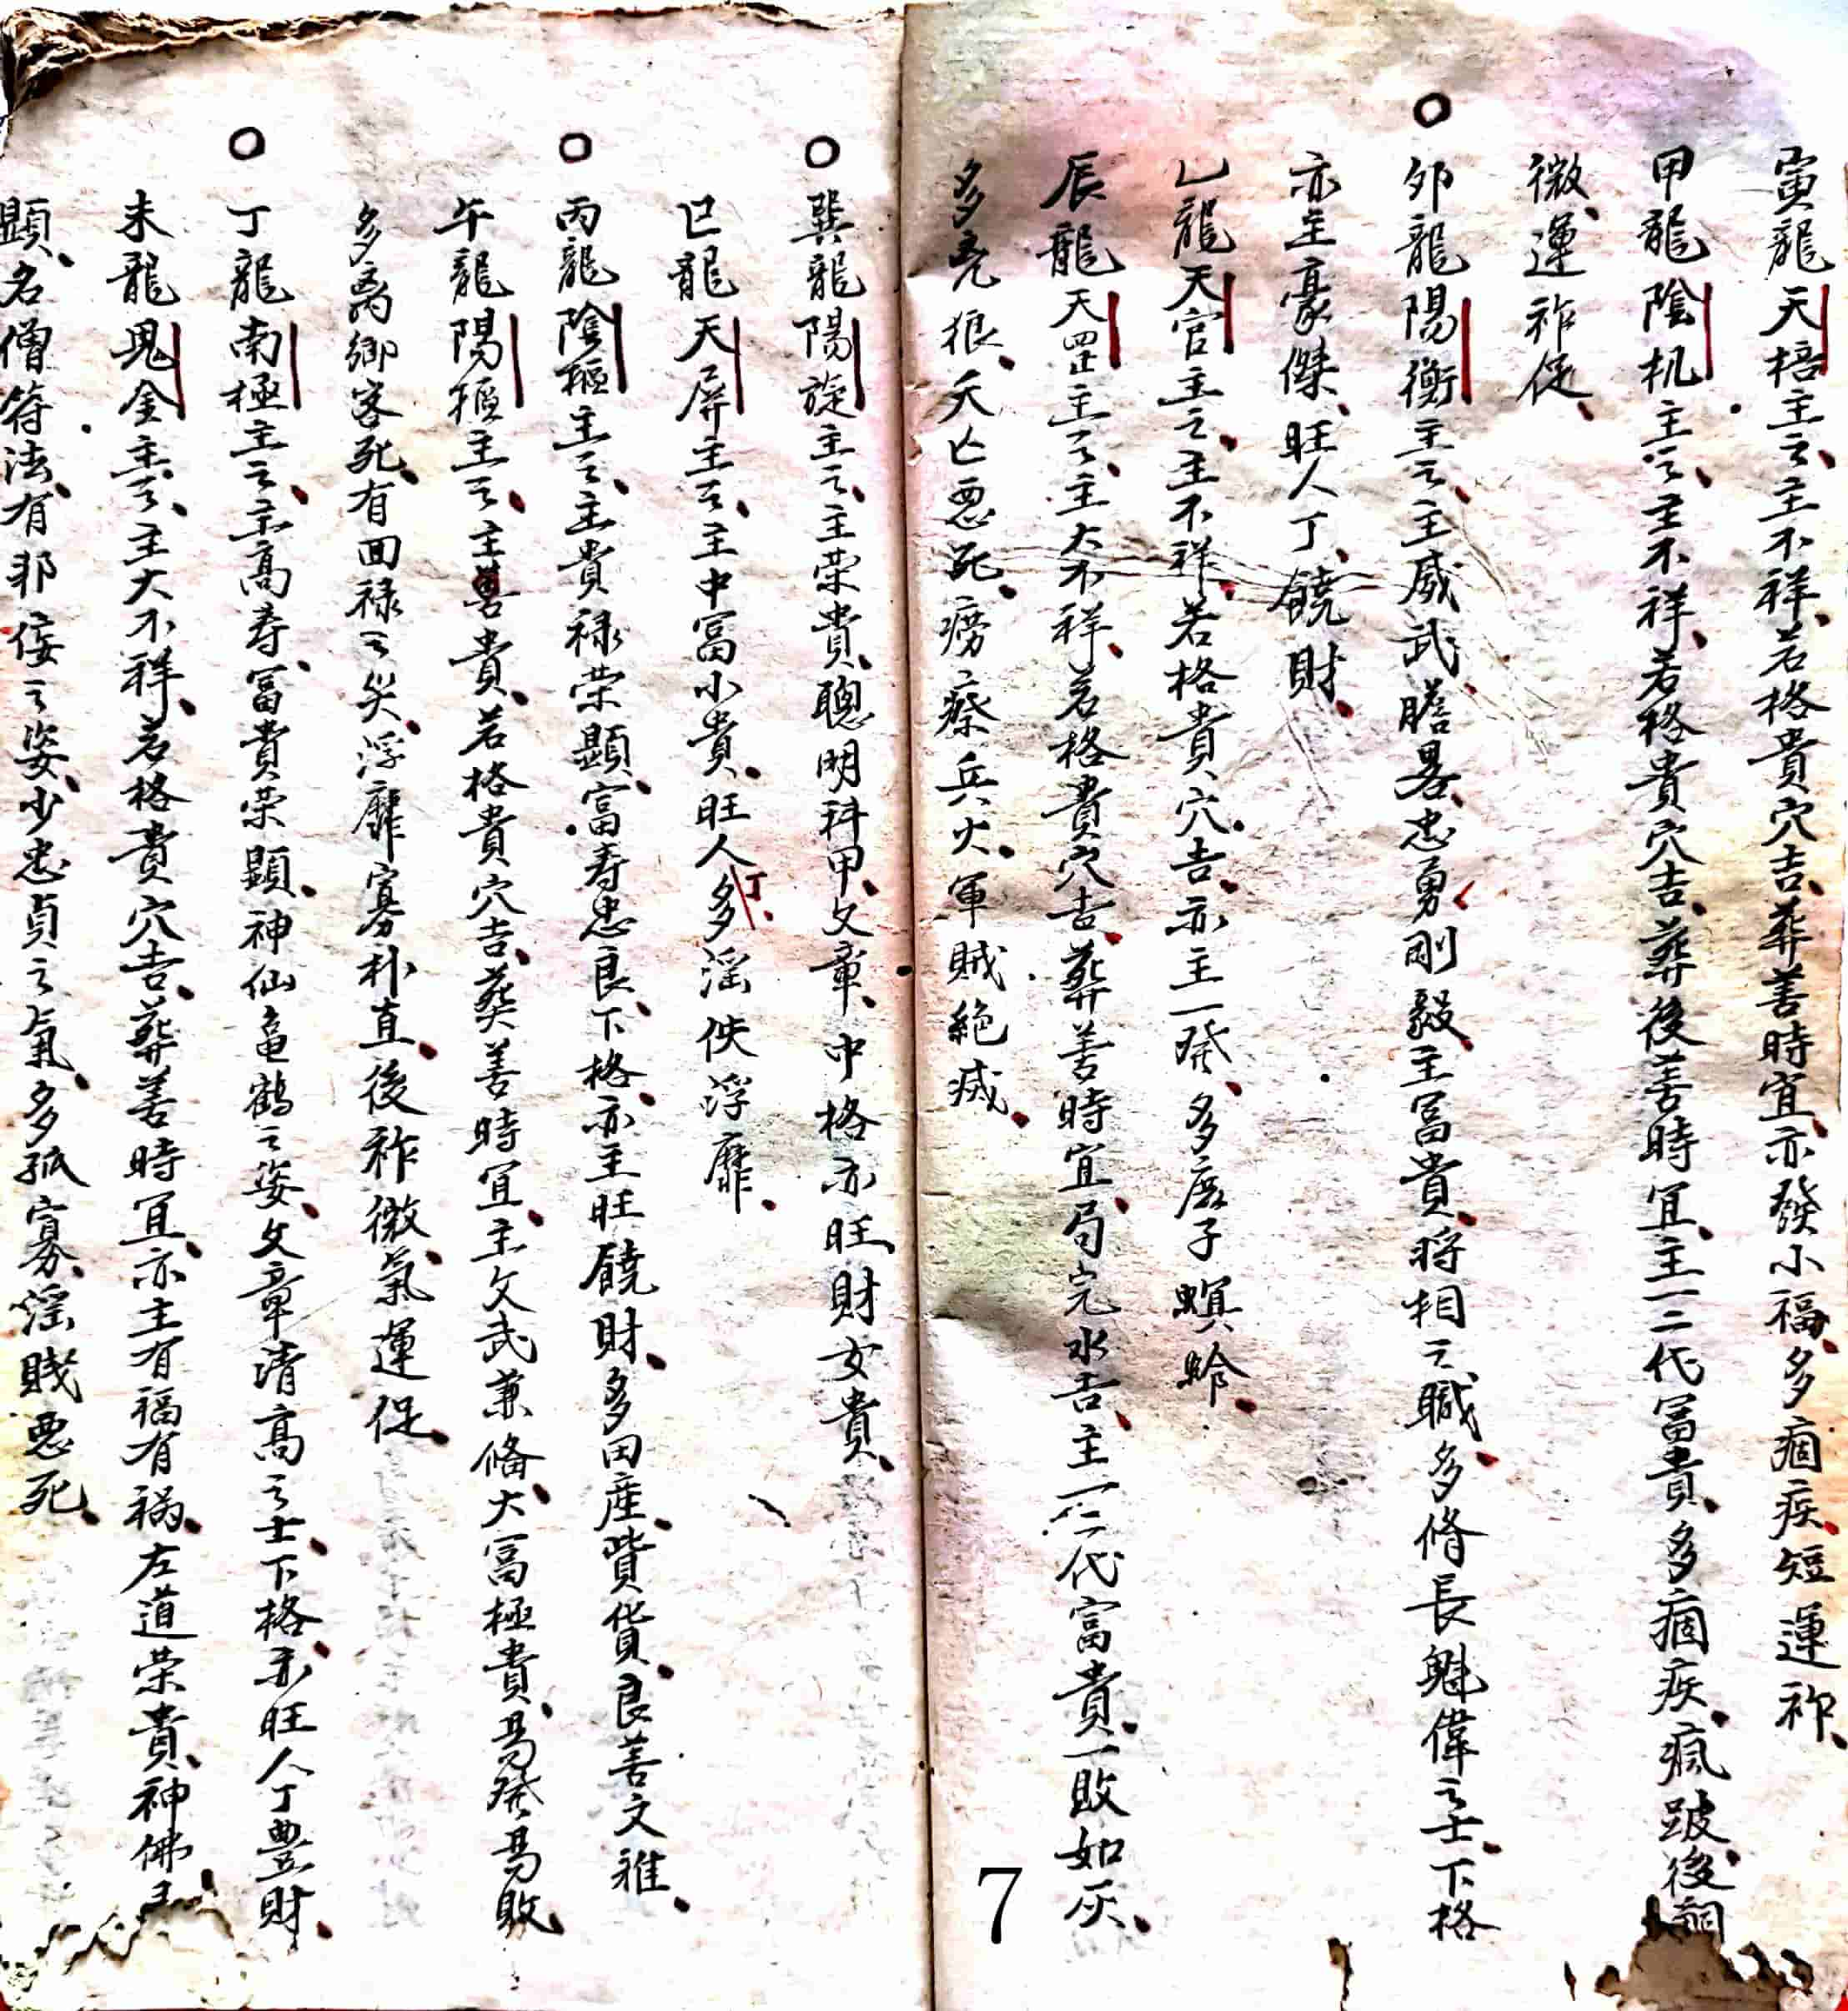 寅龍天棓主之主不祥若格貴穴吉葬善時宜亦發小福多痼疾短運祚
甲龍陰机主之主不祥若格貴穴吉葬後善時宜主一二代冨貴多痼疾瘋跛後嗣
微運祚促
○
卯龍陽衡主之主威武膽畧忠勇剛毅主冨貴将相之職多脩長魁偉之士下格
亦主豪傑旺人丁饒財
乙龍天官主之主不祥若格貴穴吉亦主一発多庶子螟蛉
辰龍天罡主之主大不祥若格貴穴吉葬善時宜局完水吉主一二代富貴一敗如灰
多兇狼夭亡悪死癆瘵兵火軍賊絶滅
○
巽龍陽旋主之主荣貴聰明科甲文章中格亦旺財女貴
巳龍天屏主之主中冨小貴旺人丁多淫佚浮靡
○
丙龍陰樞主之主貴禄荣顯富寿忠良下格亦主旺饒財多田産貲貨良善文雅
午龍陽樞主之主貴若格貴穴吉葵善時宜主文武兼俻大冨極貴易発易敗
多离鄉客死有回禄之災浮靡寡朴直後祚微氣運促
○
丁龍南極主之主高寿冨貴荣顯神仙亀鶴之姿文章清高之士下格亦旺人丁豊財
未龍鬼金主之主大不祥若格貴穴吉葬善時宜亦主有福有禍左道荣貴神佛
顯名僧符法有邪佞之姿少忠貞之氣多孤寡淫賎悪死
7